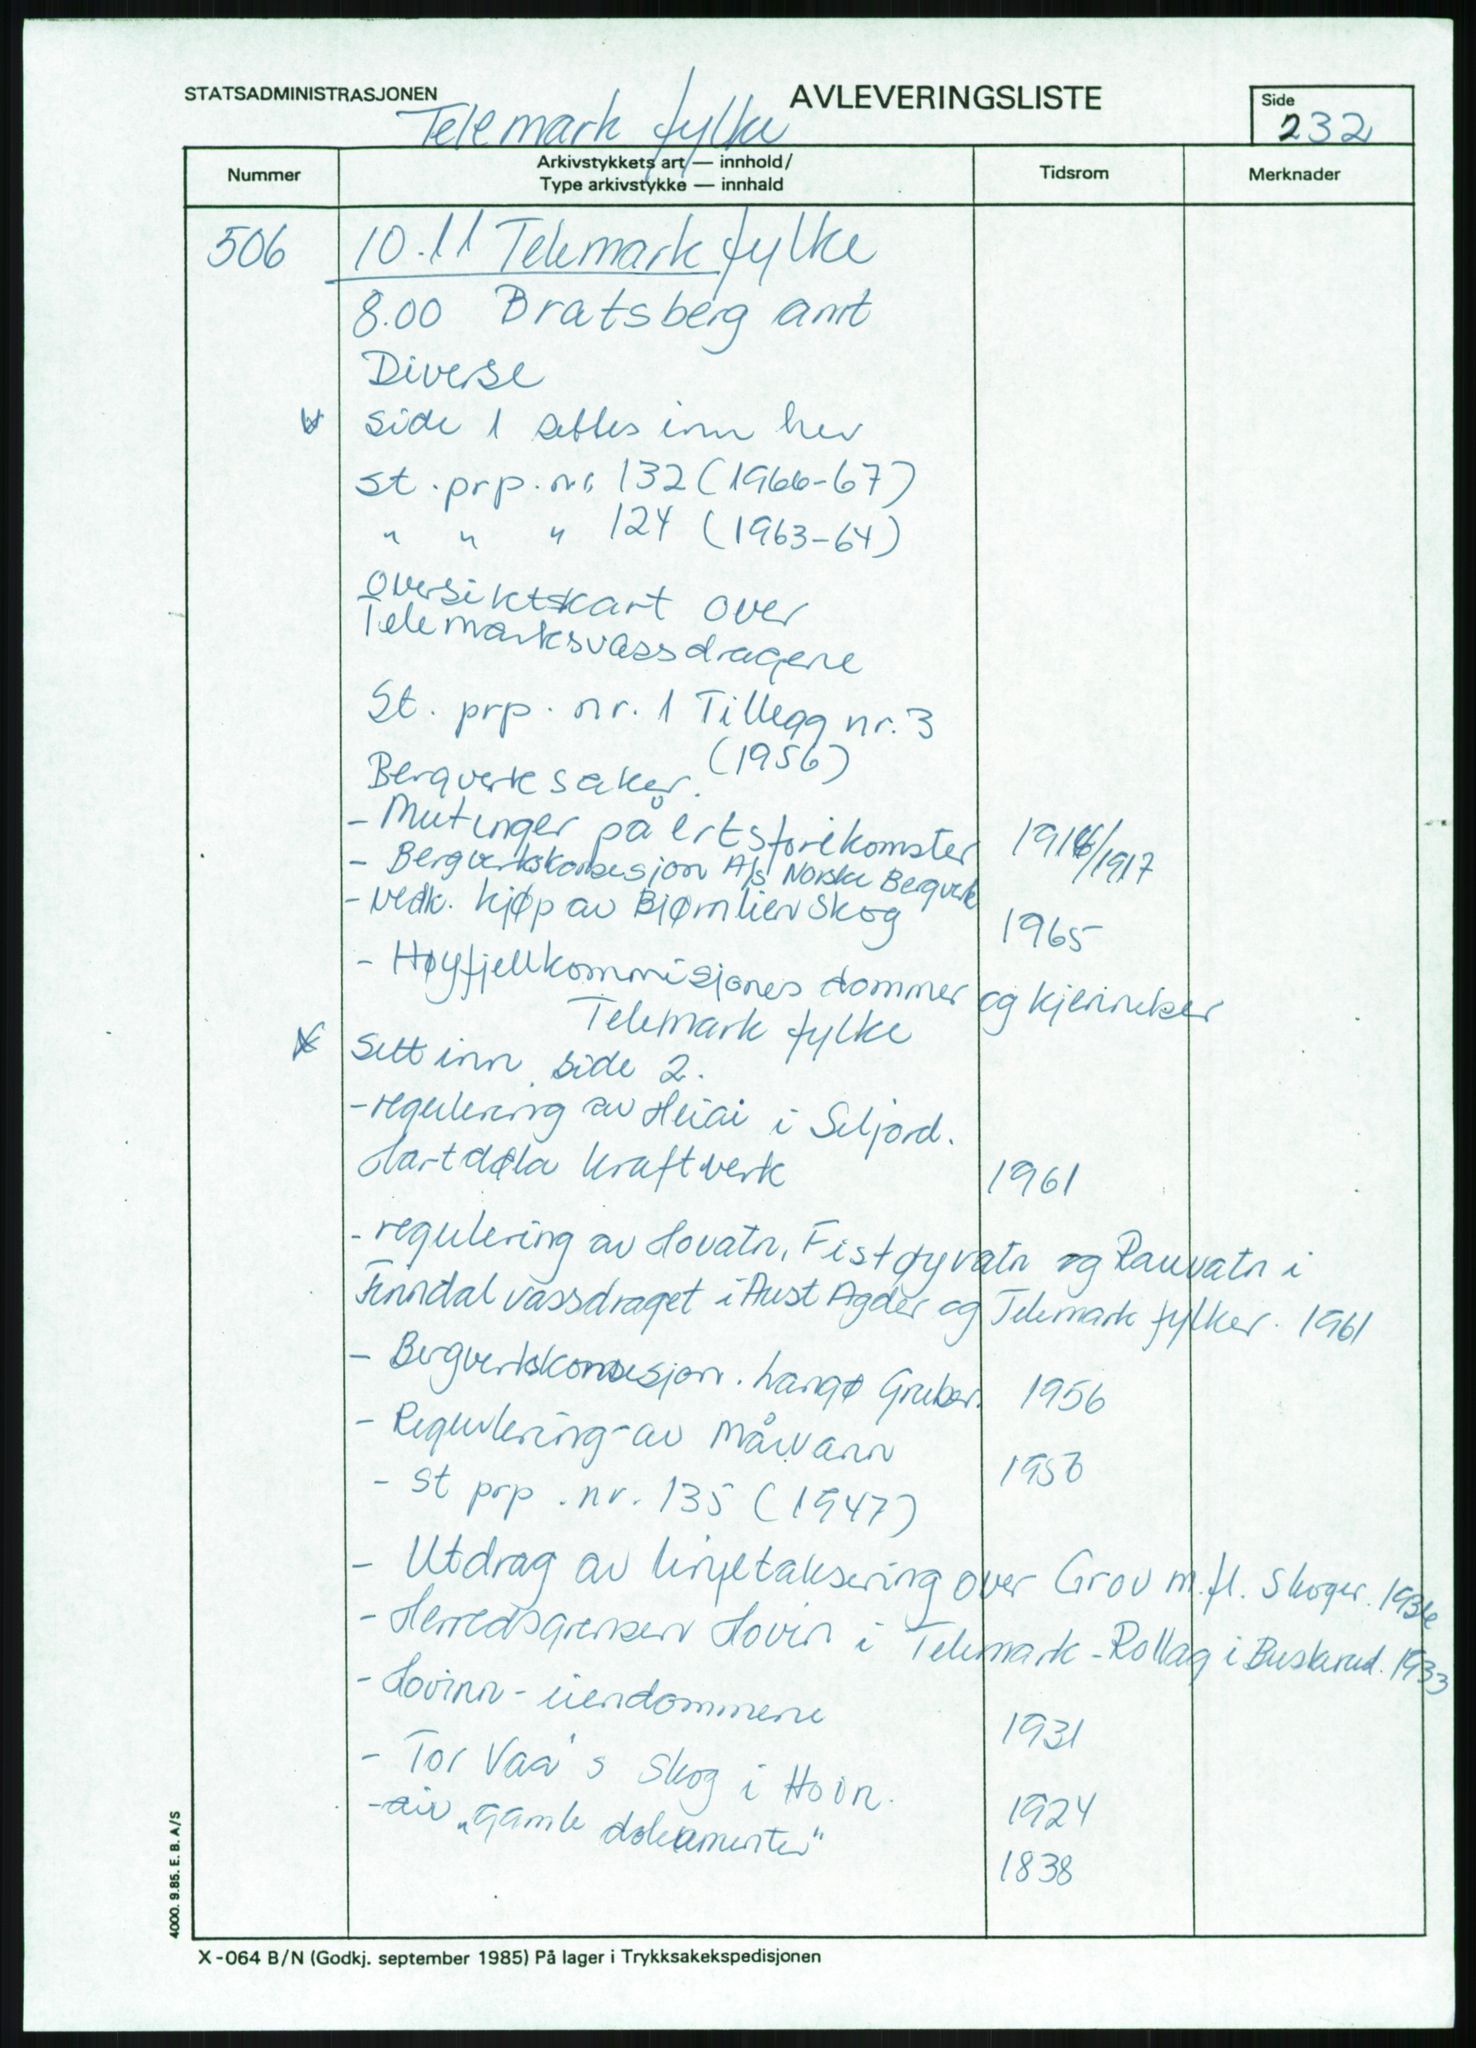 STATSADMINISTRASJONEN
AVLEVERINGSLISTE
Side
232
Telemark fylke
Nummer
Arkivstykkets art — innhold/
Type arkivstykke — innhald
Tidsrom
Merknader
506 10.11 Telemark fylke
8.00 Bratsberg amt
Diverse
side 1 settes inn her
St. prp. nr. 132 (1966-67)
" " " 124 (1963-64)
Oversiktskart over
Telemarksvassdragene
St. prp. nr. 1 Tillegg nr. 3
(1956)
Bergverksaker.
- Mutinger på ertsforekomster 1916/1917
- Bergverkskonsesjon A/s Norske Bergverk
- vedk. kjøp av Bjørnlien skog 1965
- Høyfjellkommisjones dommer og kjennelser
Telemark fylke
Sett inn side 2.
- regulering av Heiai i Seljord.
Hartdøla kraftverk 1961
- regulering av Hovatn, Fistøyvatn og Rauvatn i
Finndalvassdraget i Aust Agder og Telemark fylker. 1961
- Bergverkskonsesjon. Langø Gruber. 1956
- Regulering av Mårvann 1956
- St prp. nr. 135 (1947)
- Utdrag av linjetaksering over Grov m.fl. skoger. 1936
- Herredsgrensen Hovin i Telemark - Rollag i Buskerud. 1933
- Hovinn-eiendommene 1931
- Tor Vaa's skog i Hovin. 1924
- div „gamle dokumenter" 1838
4000. 9.85. E. B. A/S
X-064 B/N (Godkj. september 1985) På lager i Trykksakekspedisjonen